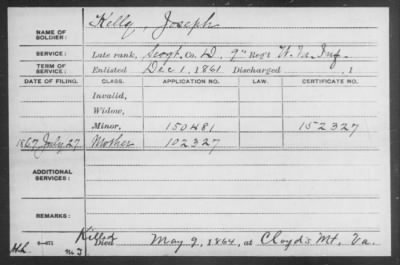 NAME OF SOLDIER: Kelly, Joseph
SERVICE: Late rank, Sergt. Co. D, 9" Regt W. Va. Inf.
TERM OF SERVICE: Enlisted Dec 1, 1861 Discharged , 1
DATE OF FILING. CLASS. APPLICATION NO. LAW. CERTIFICATE NO.
Invalid,
Widow,
Minor, 150481 152327
1867 July 27 Mother 102327
ADDITIONAL SERVICES:
REMARKS:
Killed
Died May 9, 1864, at Cloyds Mt, Va.